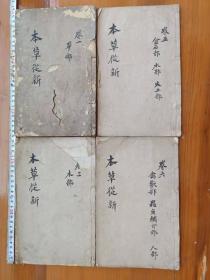 本草從新
卷一
草部
本草從新
卷五
金石部 水部 火土部
本草從新
木部
本草從新
卷六
禽獸部 蟲魚鱗介部 人部